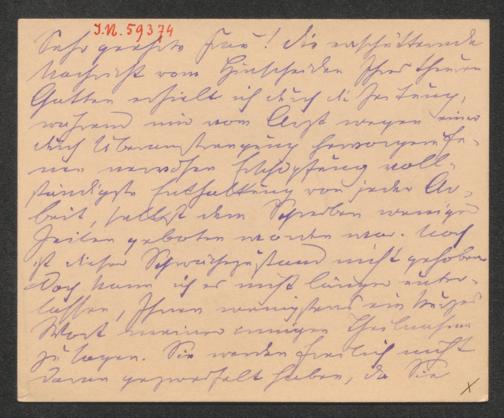 I.N. 59374
Sehr geehrte Frau! Die erschütternde
Nachricht vom Hinscheiden Ihres theuren
Gatten erhielt ich durch die Zeitung,
während mir vom Arzt wegen einer
durch Überanstrengung hervorgerufe-
nen nervösen Erschöpfung voll-
ständigste Enthaltung von jeder Ar-
beit, selbst dem Schreiben weniger
Zeilen geboten worden war. Noch
ist dieser Schwächezustand nicht gehoben
doch kann ich es nicht länger unter-
lassen, Ihnen wenigstens ein kurzes
Wort meiner innigen Theilnahme
zu sagen. Sie werden freilich nicht
daran gezweifelt haben, da Sie